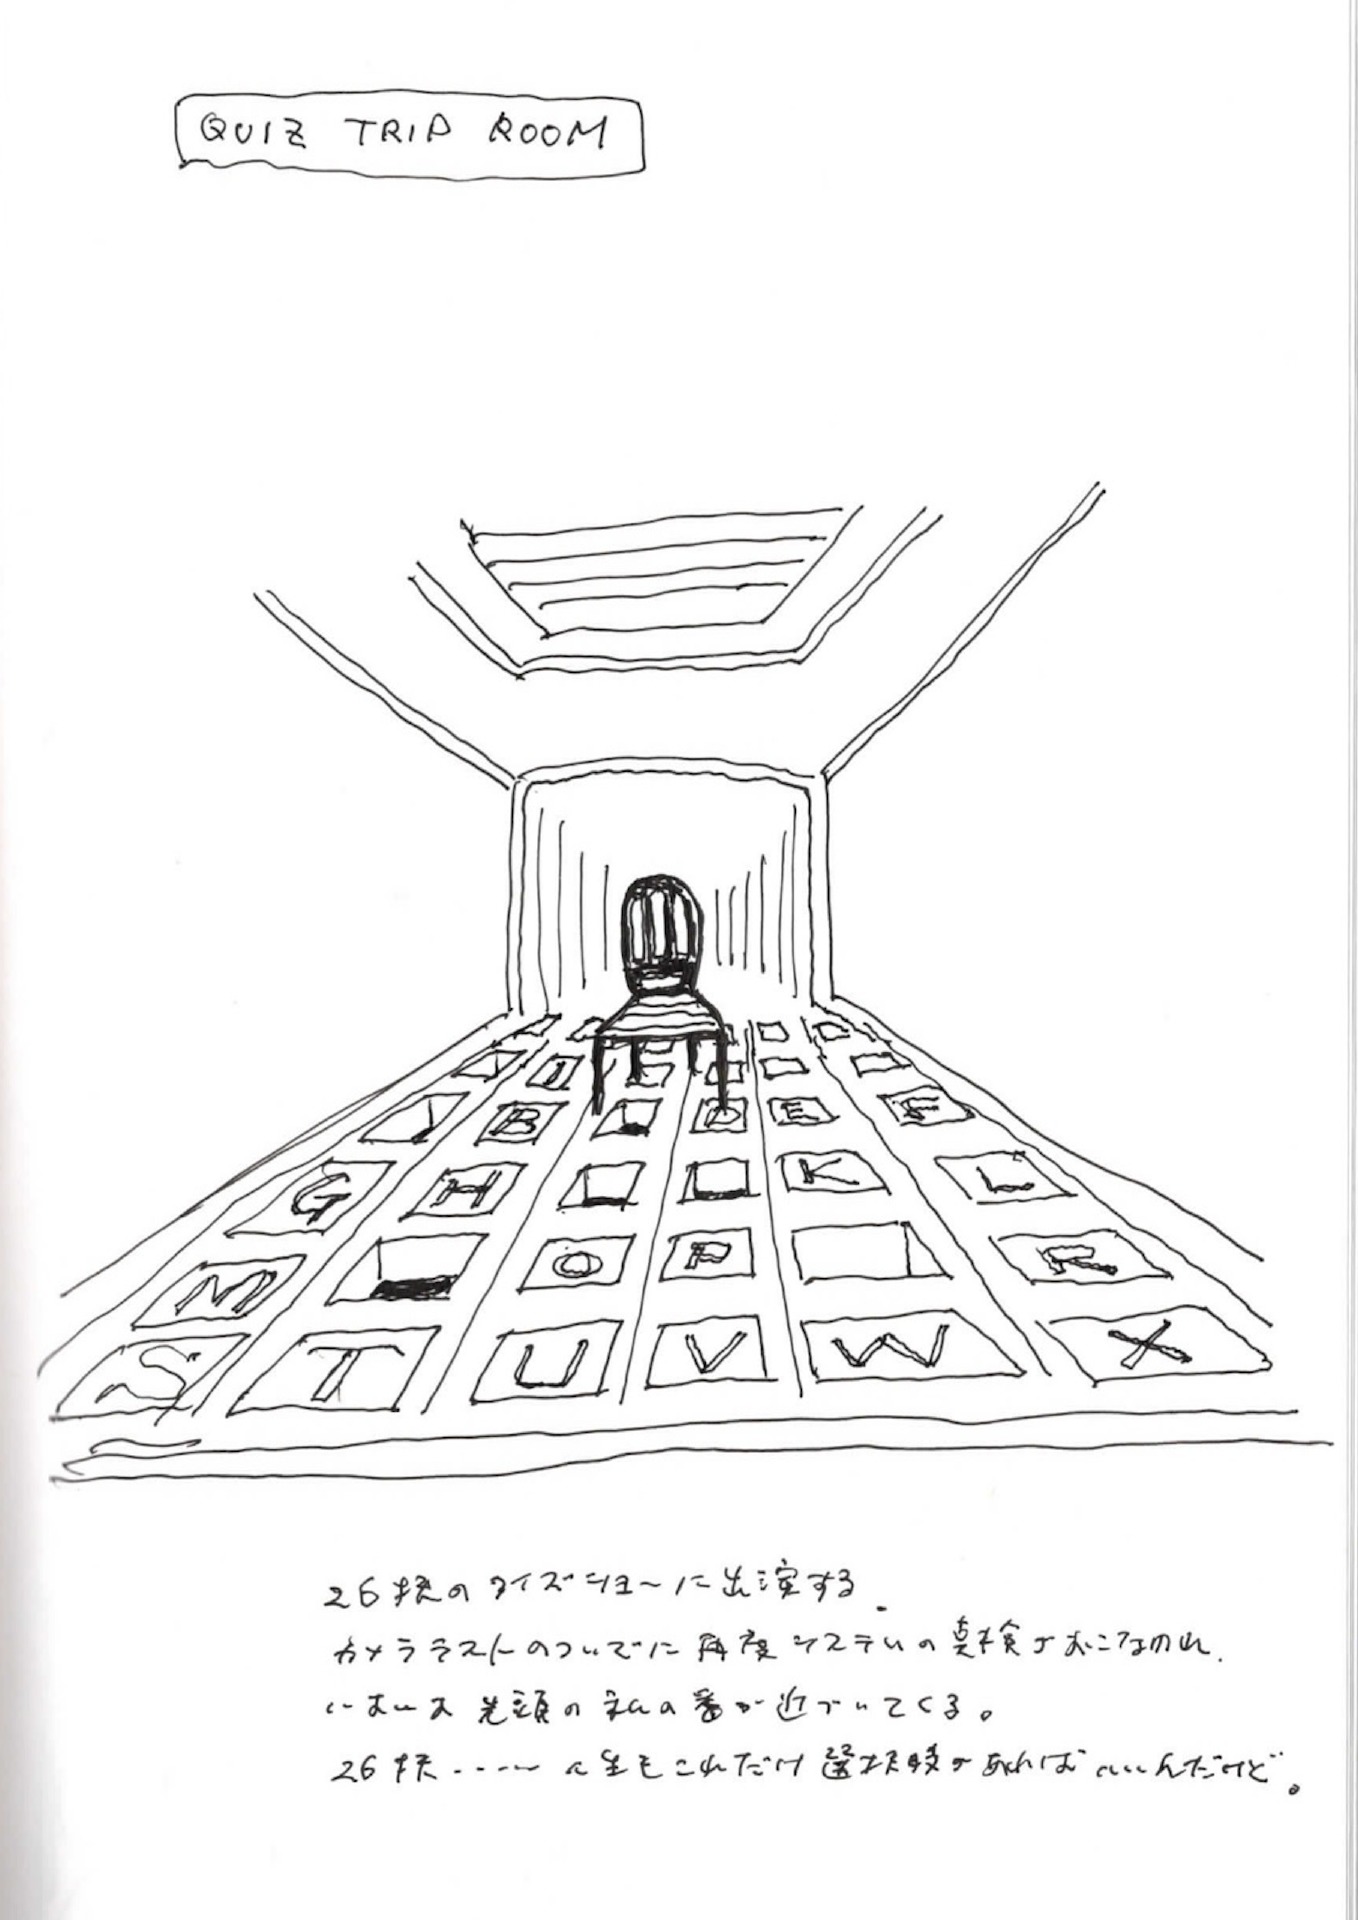 QUIZ TRIP ROOM
B D E F
G H K L
M O P R
S T U V W X
26択のクイズショーに出演する.
カメラテストのついでに再度システムの点検がおこなわれ.
いよいよ先頭の私の番が近づいてくる。
26択.....人生もこれだけ選択肢があればいいんだけど。